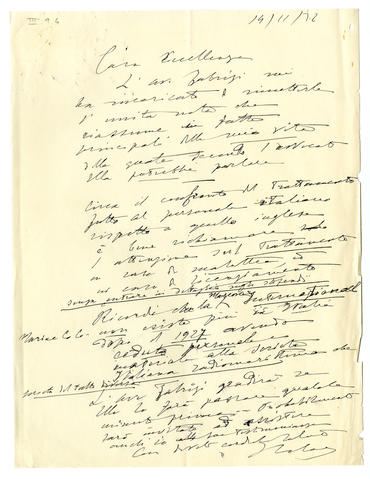 III 96
14/11/72
Cara Eccellenza
L'avv. Fabrizi mi
ha incaricato di rimetterle
l'unita nota che
riassume in fatto
principali della mia vita
della quale secondo l'avvocato
Ella potrebbe parlare
Circa il confronto del Trattamento
fatto al personale italiano
rispetto a quello inglese
è bene richiamare
l'attenzione sul Trattamento
in caso di malattia di
in caso di licenziamento
senza entrare in dettaglio sugli stipendi
Ricordi che la Marconi International
Marine C. Co. non esiste più in Italia
dopo il 1927 avendo
ceduto personale e
materiale alla Società
Italiana radiomarittima che
L'avv. Fabrizi gradirà se
Ella lo farà passare qualche
minuto prima - Probabilmente
sarà invitato ad assistere
anche io alla sua testimonianza
Con devoti cordiali saluti